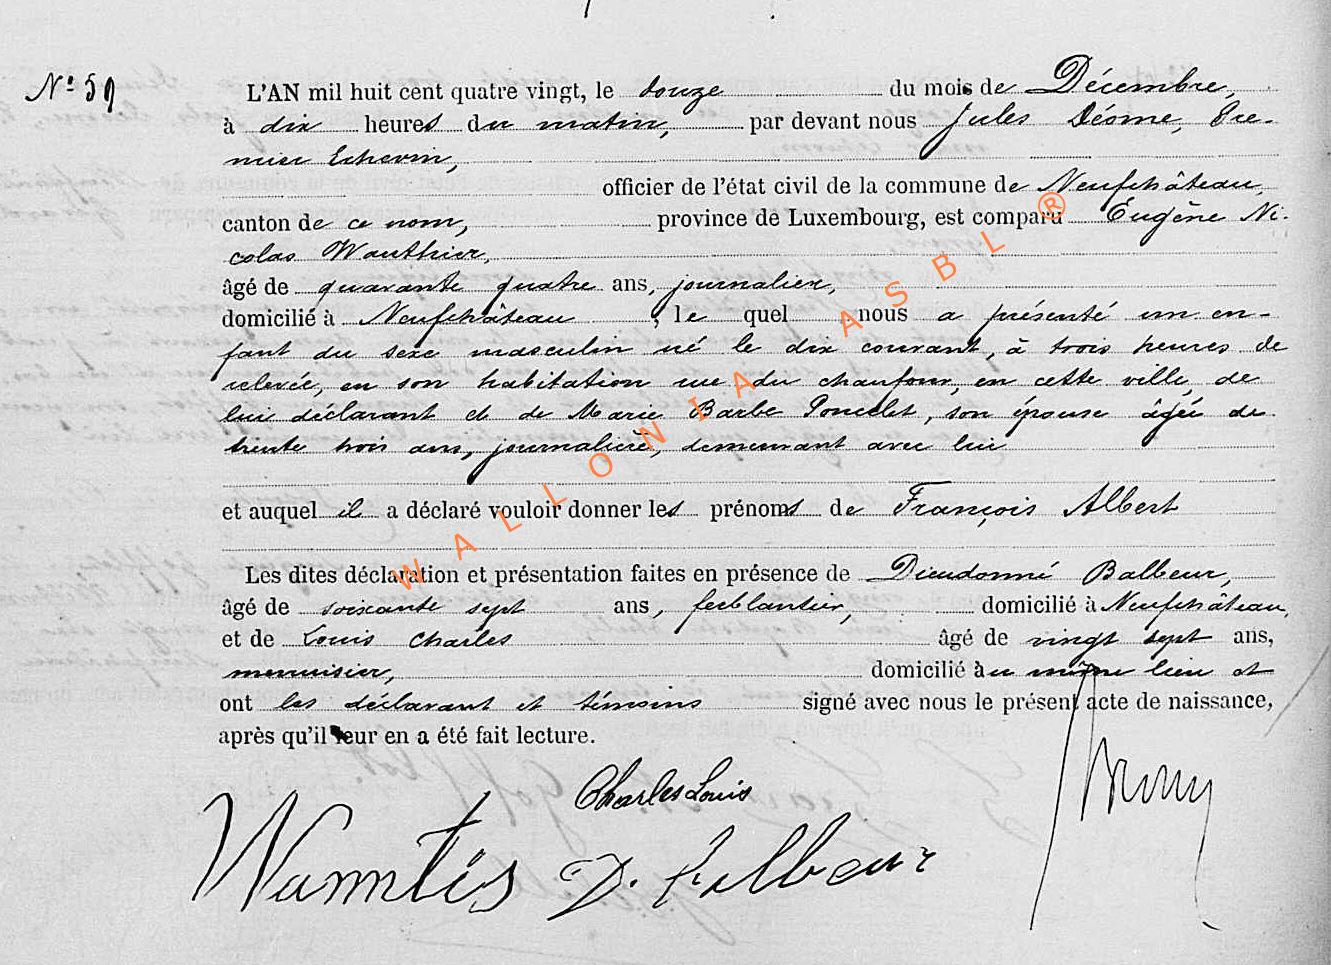 Nº 59
L'AN mil huit cent quatre vingt, le douze du mois de Décembre,
à dix heures du matin, par devant nous Jules Déome, Pre-
mier Echevin,
officier de l'état civil de la commune de Neufchâteau,
canton de ce nom, province de Luxembourg, est comparu Eugène Ni-
colas Wauthier,
âgé de quarante quatre ans, journalier,
domicilié à Neufchâteau, le quel nous a présenté un en-
fant du sexe masculin né le dix courant, à trois heures de
relevée, en son habitation rue du chaufour, en cette ville, de
lui déclarant et de Marie Barbe Poncelet, son épouse âgée de
trente trois ans, journalière, demeurant avec lui
et auquel il a déclaré vouloir donner les prénoms de François Albert
Les dites déclaration et présentation faites en présence de Dieudonné Balbeur,
âgé de soixante sept ans, ferblantier, domicilié à Neufchâteau,
et de Louis Charles âgé de vingt sept ans,
menuisier, domicilié au même lieu et
ont les déclarant et témoins signé avec nous le présent acte de naissance,
après qu'il leur en a été fait lecture.
Charles Louis
D. Balbeur
WALLONIA ASBL ®